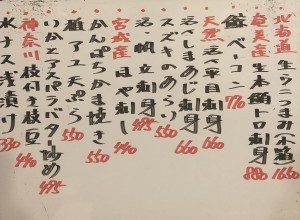 北海道 生うにつまみ(小箱) 1650
奄美産 生本鮪トロ刺身 880
鯨ベーコン 770
天然 活〆平目刺身 660
活〆しまあじ刺身 660
スズキのあらい 550
活・帆立刺身 495
宮城産 ほや刺し 440
かんぱちかま焼き 550
稚アユ天ぷら 550
いかとアスパラバター炒め 495
神奈川 枝付き枝豆 440
水ナス浅漬け 330